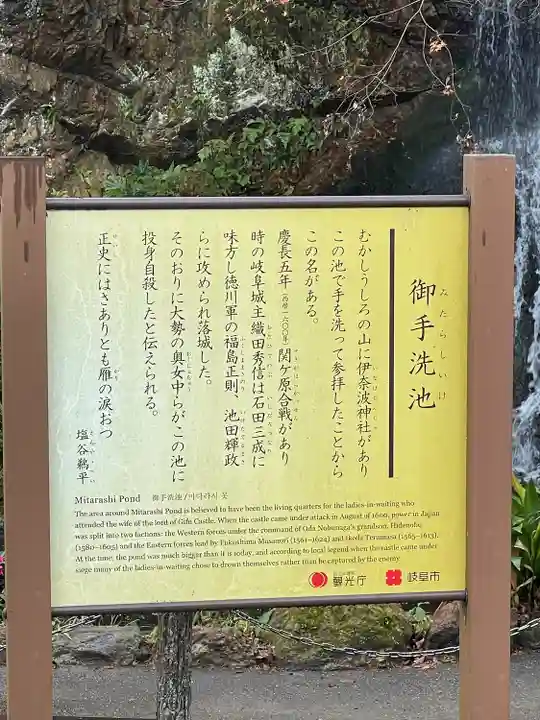 御手洗池
みたらしいけ
むかしうしろの山に伊奈波神社があり
この池で手を洗って参拝したことから
この名がある。
慶長五年(西暦一六〇〇年)関ケ原合戦があり
時の岐阜城主織田秀信は石田三成に
味方し徳川軍の福島正則、池田輝政
らに攻められ落城した。
そのおりに大勢の奥女中らがこの池に
投身自殺したと伝えられる。
正史にはさありとも雁の涙おつ
塩谷鵜平
Mitarashi Pond 御手洗池/미타라시 못
The area around Mitarashi Pond is believed to have been the living quarters for the ladies-in-waiting who
attended the wife of the lord of Gifu Castle. When the castle came under attack in August of 1600, power in Japan
was split into two factions: the Western forces under the command of Oda Nobunaga's grandson, Hidenobu
(1580–1605) and the Eastern forces lead by Fukushima Masanori (1561–1624) and Ikeda Terumasa (1565–1613).
At the time, the pond was much bigger than it is today, and according to local legend when the castle came under
siege many of the ladies-in-waiting chose to drown themselves rather than be captured by the enemy.
観光庁
岐阜市